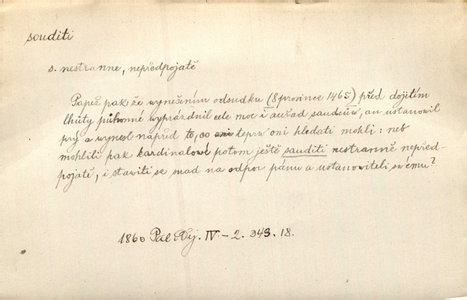 souditi
s. nestranně, nepředpojatě
Papež pak že vynešením odsudku (8 prosince 1465) před dojitím
lhůty půhonné vyprázdnil cele moc i auřad saudcův, an ustanovil
prý a vynesl napřed to, co teprv oni hledati mohli: neb
mohliliť pak kardinalové potom ještě sauditi nestranně nepřed-
pojatě, i staviti se snad na odpor pánu a ustanoviteli svému?
1860 Pal. Děj. IV–2. 343. 18.